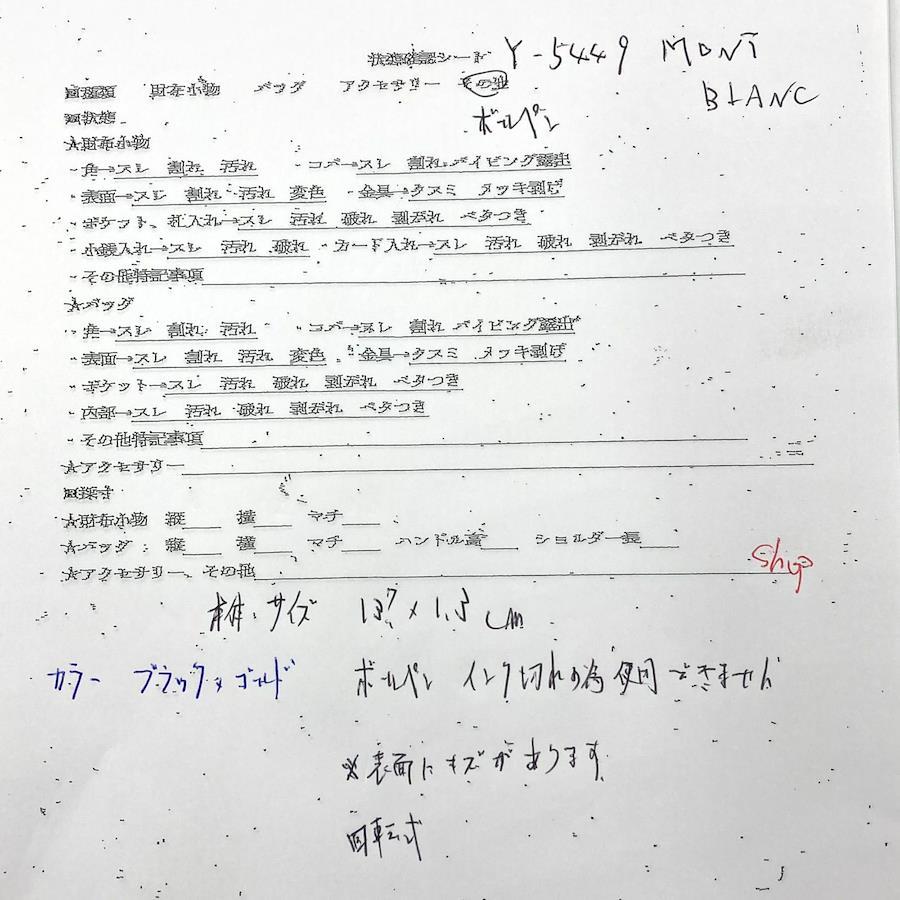 状態確認シート Y-5449 MONT
BLANC
回種類 財布小物 バッグ アクセサリー その他
ボールペン
回状態
★財布小物
・角→スレ 割れ 汚れ ・コバ→スレ 割れ パイピング露出
・表面→スレ 割れ 汚れ 変色 ・金具→クスミ メッキ剥げ
・ポケット、札入れ→スレ 汚れ 破れ 剥がれ ベタつき
・小銭入れ→スレ 汚れ 破れ ・カード入れ→スレ 汚れ 破れ 剥がれ ベタつき
・その他特記事項
★バッグ
・角→スレ 割れ 汚れ ・コバ→スレ 割れ パイピング露出
・表面→スレ 割れ 汚れ 変色 ・金具→クスミ メッキ剥げ
・ポケット→スレ 汚れ 破れ 剥がれ ベタつき
・内部→スレ 汚れ 破れ 剥がれ ベタつき
・その他特記事項
★アクセサリー
回採寸
★財布小物 縦 横 マチ
★バッグ: 縦 横 マチ ハンドル高 ショルダー長
★アクセサリー、その他
本体:サイズ 13.7×1.3cm
カラー ブラック×ゴールド ボールペン インク切れの為使用できません
※表面にキズがあります
回転式